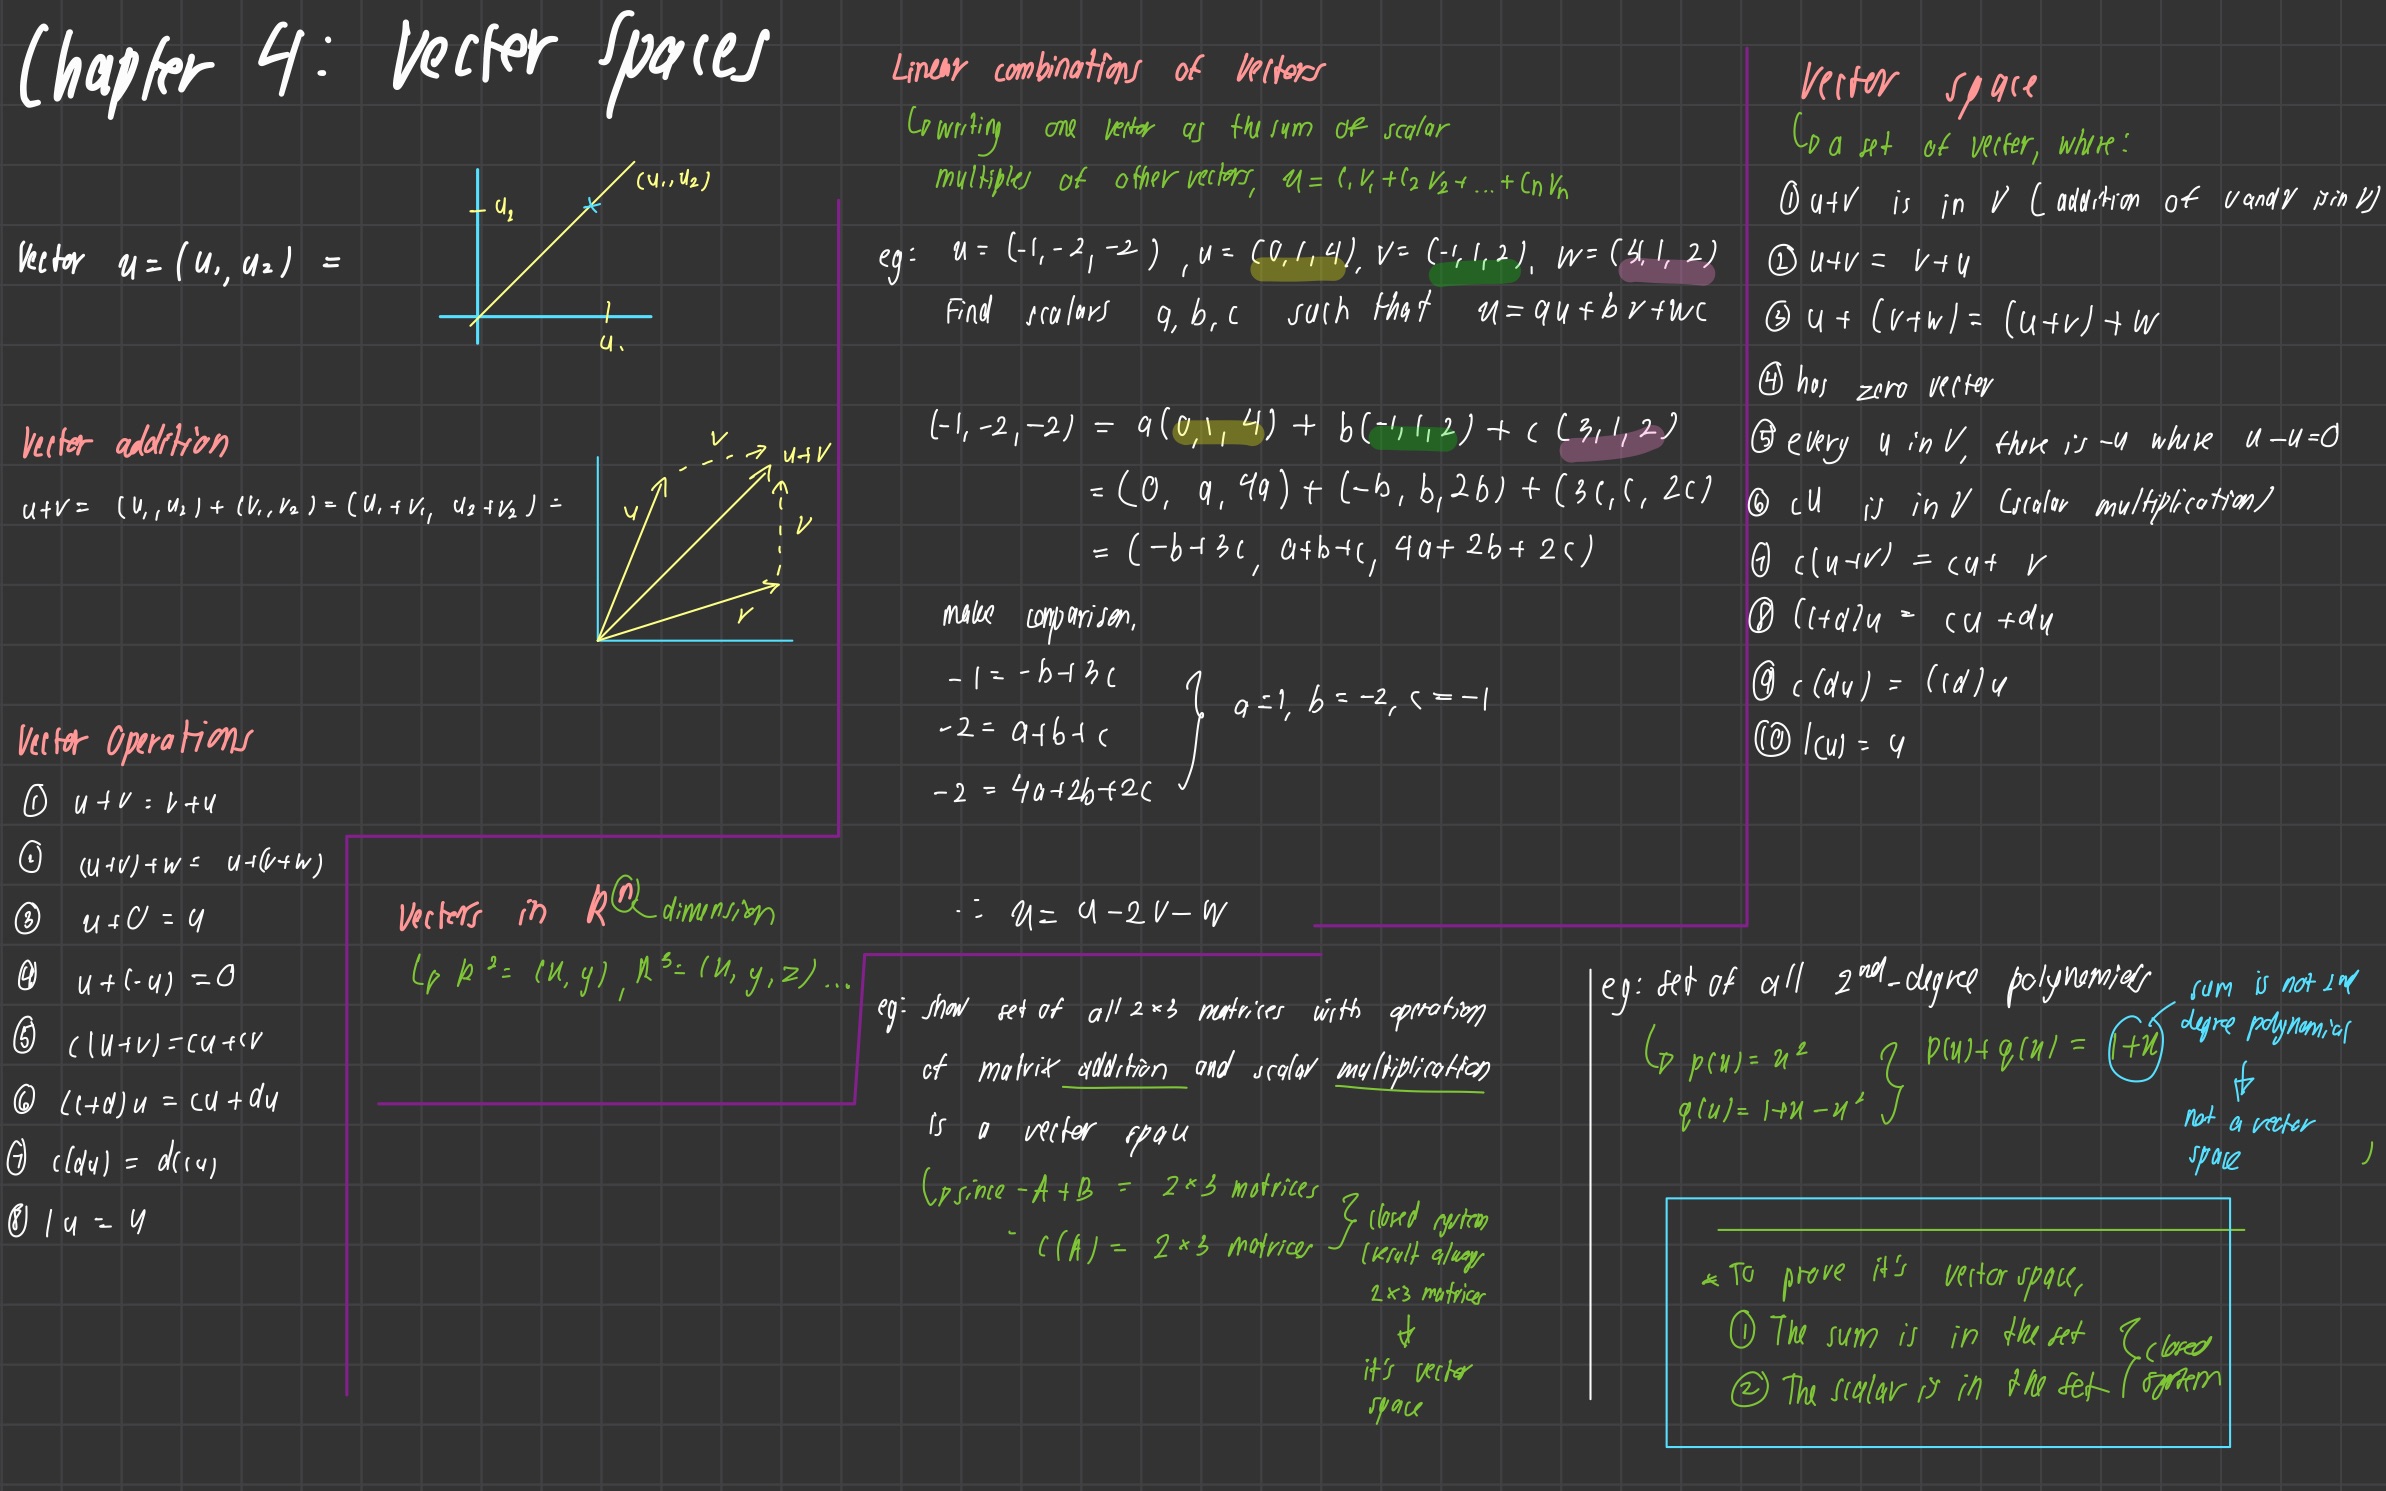 Chapter 4: Vector Spaces
(u₁, u₂)
u₂
Vector u = (u₁, u₂) =
u₁
Vector addition
u+v = (u₁, u₂) + (v₁, v₂) = (u₁+v₁, u₂+v₂) =
v
u+v
u
v
v
Vector Operations
① u+v = v+u
② (u+v)+w = u+(v+w)
③ u+0 = u
④ u+(-u) = 0
⑤ c(u+v) = cu+cv
⑥ (c+d)u = cu+du
⑦ c(du) = d(cu)
⑧ 1u = u
Vectors in Rⁿ dimension
↳ R² = (x, y), R³ = (x, y, z) ...
Linear combinations of vectors
↳ writing one vector as the sum of scalar
multiples of other vectors, x = c₁v₁ + c₂v₂ + ... + cnvn
eg: x = (-1, -2, -2), u = (0, 1, 4), v = (-1, 1, 2), w = (3, 1, 2)
Find scalars a, b, c such that x = au + bv + wc
(-1, -2, -2) = a(0, 1, 4) + b(-1, 1, 2) + c(3, 1, 2)
= (0, a, 4a) + (-b, b, 2b) + (3c, c, 2c)
= (-b+3c, a+b+c, 4a+2b+2c)
make comparison,
-1 = -b+3c
-2 = a+b+c
-2 = 4a+2b+2c
a=1, b = -2, c = -1
∴ x = u - 2v - w
eg: show set of all 2×3 matrices with operation
of matrix addition and scalar multiplication
is a vector space
↳ since - A+B = 2×3 matrices
- c(A) = 2×3 matrices
closed system
(result always
2×3 matrices
↓
it's vector
space
Vector space
↳ a set of vector, where:
① u+v is in V (addition of u and v is in V)
② u+v = v+u
③ u + (v+w) = (u+v) + w
④ has zero vector
⑤ every u in V, there is -u where u-u=0
⑥ cu is in V (scalar multiplication)
⑦ c(u+v) = cu + v
⑧ (c+d)u = cu + du
⑨ c(du) = (cd)u
⑩ 1(u) = u
eg: set of all 2nd-degree polynomials
↳ p(x) = x²
q(x) = 1+x-x²
p(x)+q(x) = 1+x
sum is not 2nd
degree polynomial
↓
not a vector
space
* To prove it's vector space,
① The sum is in the set
② The scalar is in the set
closed
system